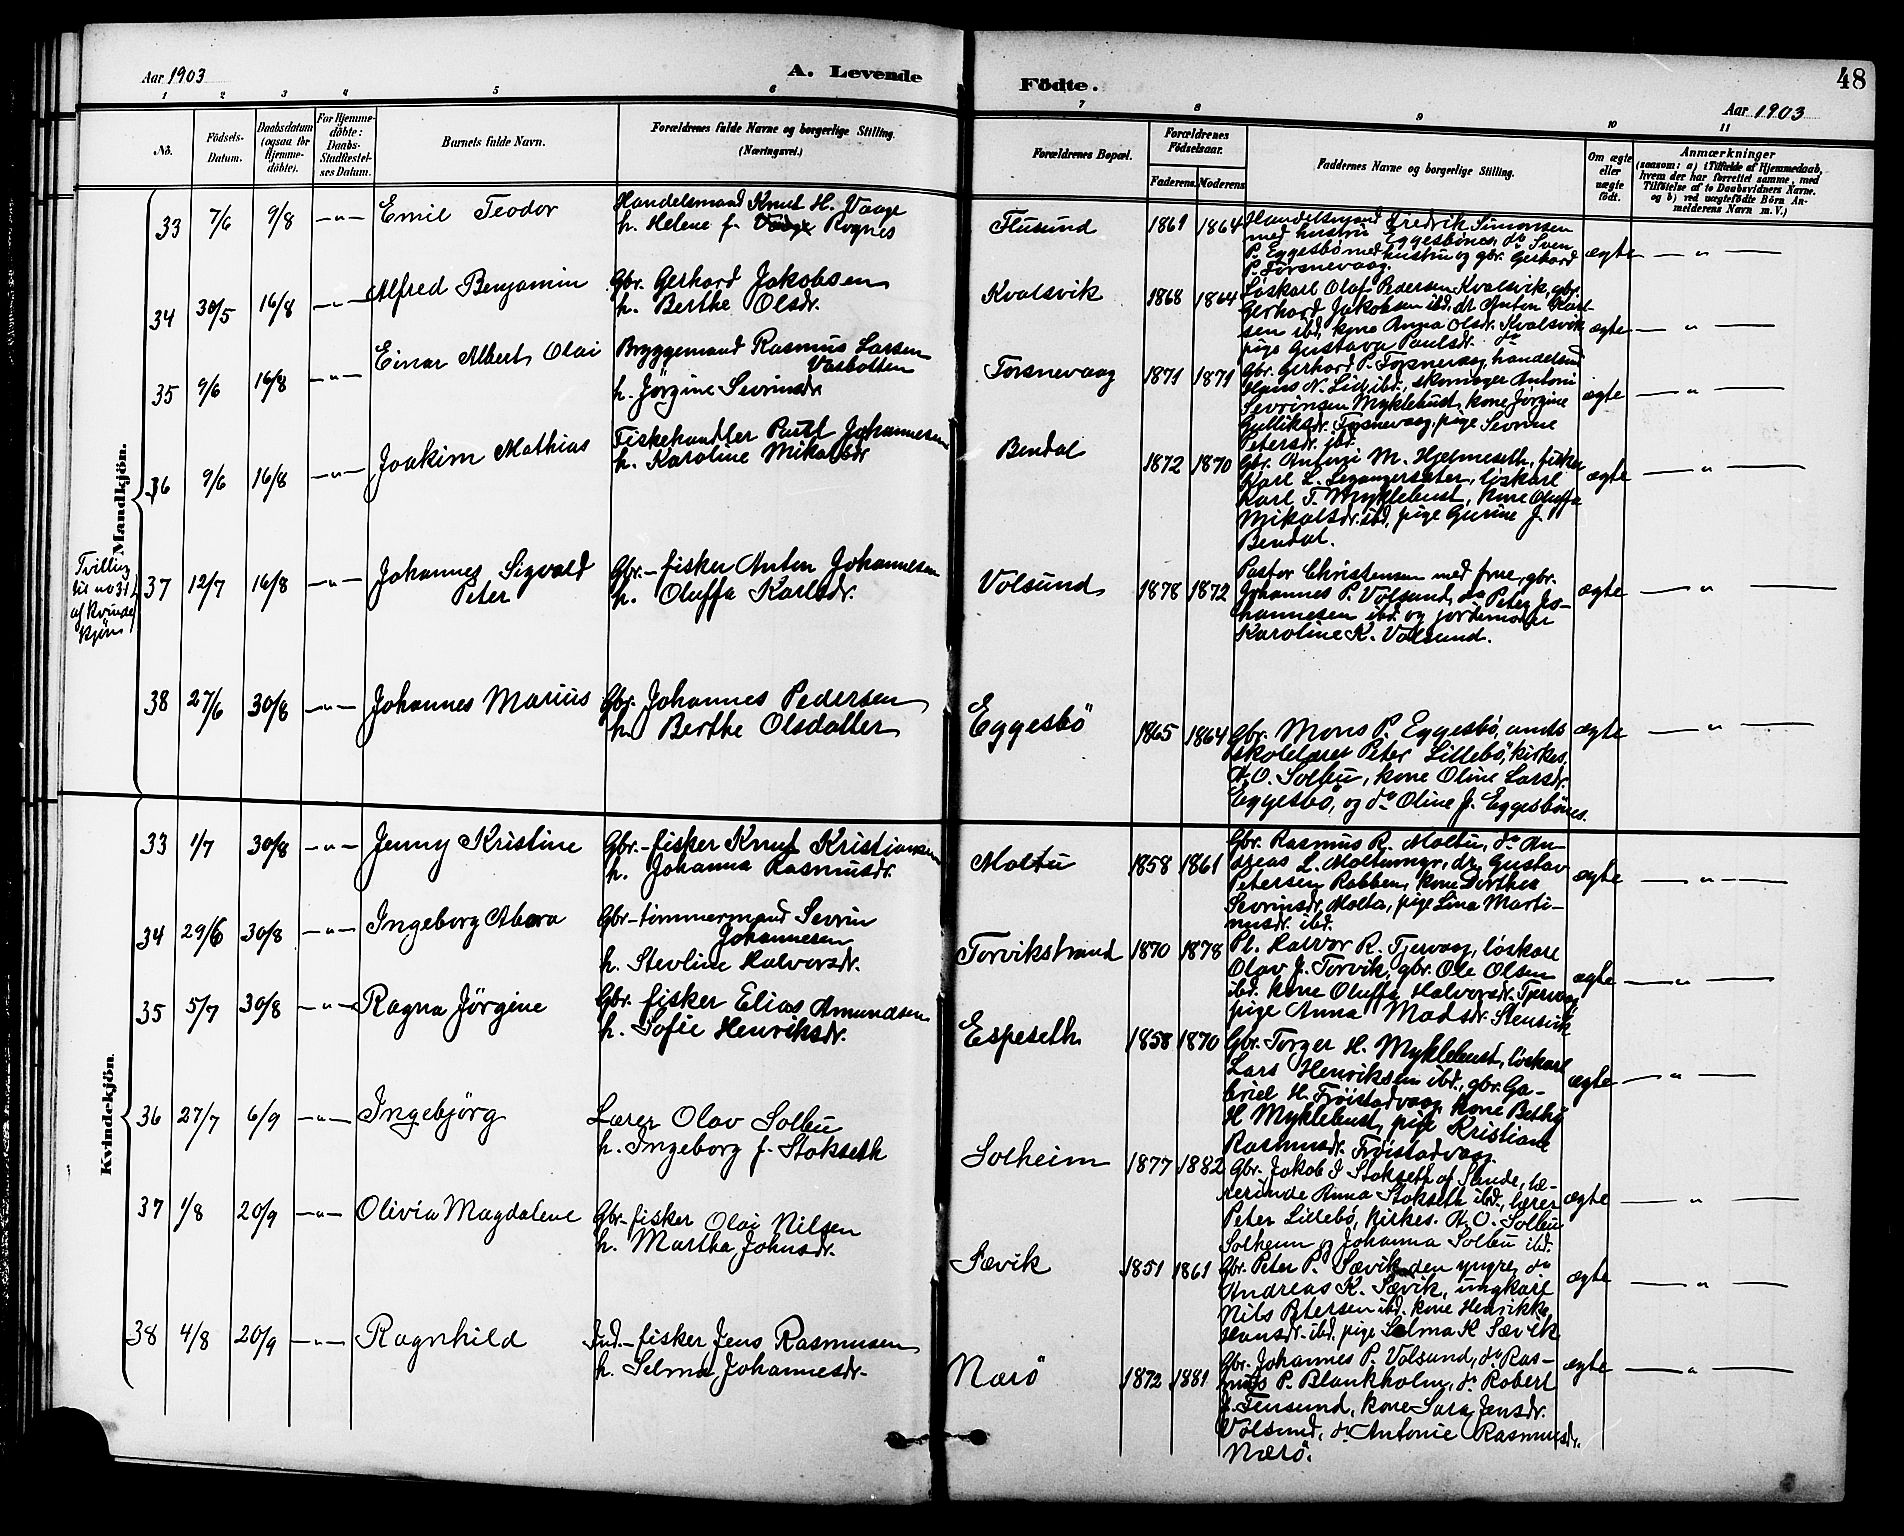 Aar 1903
A. Levende
Födte.
48
Aar 1903
1 2 3 4 5 6 7 8 9 10 11
No.
Födsels-Datum.
Daabsdatum (ogsaa for Hjemme-döbte).
For Hjemme-döbte: Daabs-Stadfæstel-ses Datum.
Barnets fulde Navn.
Forældrenes fulde Navne og borgerlige Stilling. (Næringsvei.)
Forældrenes Bopæl.
Forældrenes Födselsaar.
Faderens. Moderens.
Faddernes Navne og borgerlige Stilling.
Om ægte eller uægte födt.
Anmærkninger
(saasom: a) i Tilfælde af Hjemmedaab,
hvem der har forrettet samme, med
Tilföielse af to Daabsvidners Navne.
og b) ved uægtefödte Börn An-
melderens Navn m. V.)
Mandkjön.
33 7/6 9/8 —„— Emil Teodor
Handelsmand Knut H. Vaage
h. Helene f. Rognes
Flusund 1861 1864
Handelsmand Fredrik Simonsen
med hustru Eggesbönes, do Sven
P. Eggesbö med hustru og gbr. Gerhard
P. Torsnevaag.
ægte — „ —
34 30/5 16/8 —„— Alfred Benjamin
Gbr. Gerhard Jakobsen
h. Berthe Olsdr.
Kvalsvik 1868 1864
Löskarl Olaf Pedersen Kvalsvik, gbr.
Gerhard Jakobsen ibd. dr. Anton Karl-
sen ibd, kone Anna Olsdr. Kvalsvik
pige Gustava Paulsdr. do
ægte — „ —
35 9/6 16/8 —„— Einar Albert Olai
Bryggemand Rasmus Larsen
Vasbotten
h. Jörgine Sevrinsdr
Torsnevaag 1871 1871
Gbr. Gerhard P. Torsnevaag, handelsm
Hans N. Lid, ibd., skomager Antoni
Sevrinsen Myklebust, kone Jörgine
Gulliksdr. Torsnevaag, pige Sevrine
Petersdr. ibd.
ægte — „ —
36 9/6 16/8 —„— Joakim Mathias
Fiskehandler Paul Johannesen
h. Karoline Mikalsdr
Bendal 1872 1870
Gbr. Antoni M. Hjelmeseth, fisker
Karl L. Leganger­sæter, löskarl
Karl T. Myklebust, kone Oluffa
Mikalsdr. ibd, pige Gurine J.
Bendal.
ægte — „ —
Tvilling
til no 31
af kvinde
kjön
37 12/7 16/8 —„— Johannes Sigvald
Peter
Gbr.-fisker Anton Johannesen
h. Oluffa Karlsdr.
Volsund 1878 1872
Pastor Christensen med frue, gbr.
Johannes P. Volsund, do Peter Jo-
hannesen ibd. og jordemoder
Karoline K. Volsund.
ægte — „ —
38 27/6 30/8 —„— Johannes Marius
Gbr. Johannes Pedersen
h. Berthe Olsdatter
Eggesbö 1865 1864
Gbr. Mons P. Eggesbö, amts
skolelærer Peter Lillebö, kirkes.
A. O. Solbu, kone Oline Larsdr.
Eggesbö, og do Oline J. Eggesbönes.
ægte — „ —
Kvindekjön.
33 1/7 30/8 —„— Jenny Kristine
Gbr.-fisker Knut Kristiansen
h. Johanna Rasmusdr.
Moltu 1858 1861
Gbr. Rasmus R. Moltu, do An-
dreas L. Moltumyr, dr. Gustav
Petersen Robben, kone Dorthea
Sevrinsdr. Molta, pige Lina Marti-
nusdr. ibd.
ægte — „ —
34 29/6 30/8 —„— Ingeborg
Gbr-tömmermand Sevrin
Johannesen
h. Stevline Halvorsdr.
Torvikstrand 1870 1878
Pl. Halvor R. Tjervaag, löskarl
Olav J. Torvik, gbr. Ole Olsen
ibd. kone Oluffa Halvorsdr. Tjervaag
pige Anna Madsdr. Stensvik
ægte — „ —
35 5/7 30/8 —„— Ragna Jörgine
Gbr. fisker Elias Amundsen
h. Sofie Henriksdr.
Espeseth 1858 1870
Gbr. Torger H. Myklebust, löskarl
Lars Henriksen ibd., gbr. Ga-
briel H. Fröistadvaag, kone Bethy
H. Myklebust, pige Kristiane
Rasmusdr. Fröistadvaag
ægte — „ —
36 27/7 6/9 —„— Ingebjörg
Lærer Olav Solbu
h. Ingeborg f. Stokseth
Solheim 1877 1882
Gbr. Jakob J Stokseth af Sande, læ-
rerinde Anna Stokseth ibd., lærer
Peter Lillebö, Kirkes. A. O. Solbu
Solheim og Johanna Solbu ibd.
ægte — „ —
37 1/8 20/9 —„— Olivia Magdalene
Gbr.-fisker Olai Nilsen
h. Martha Johnsdr.
Sævik 1851 1861
Gbr. Peter P. Sævik den yngre, do
Andreas K. Sævik, ungkarl
Nils Petersen ibd. kone Henrikke
Hansdr. ibd. pige Selma K Sævik
ægte — „ —
38 4/8 20/9 —„— Ragnhild
Ind.-fisker Jens Rasmusen
h. Selma Johannesdr.
Nærö 1872 1881
Gbr. Johannes P. Volsund, do Ras-
mus P. Blankholm, do Robert
J. Flusund, kone Sara Jensdr.
Volsund, do Antonie Rasmusdr.
Nærö.
ægte — „ —